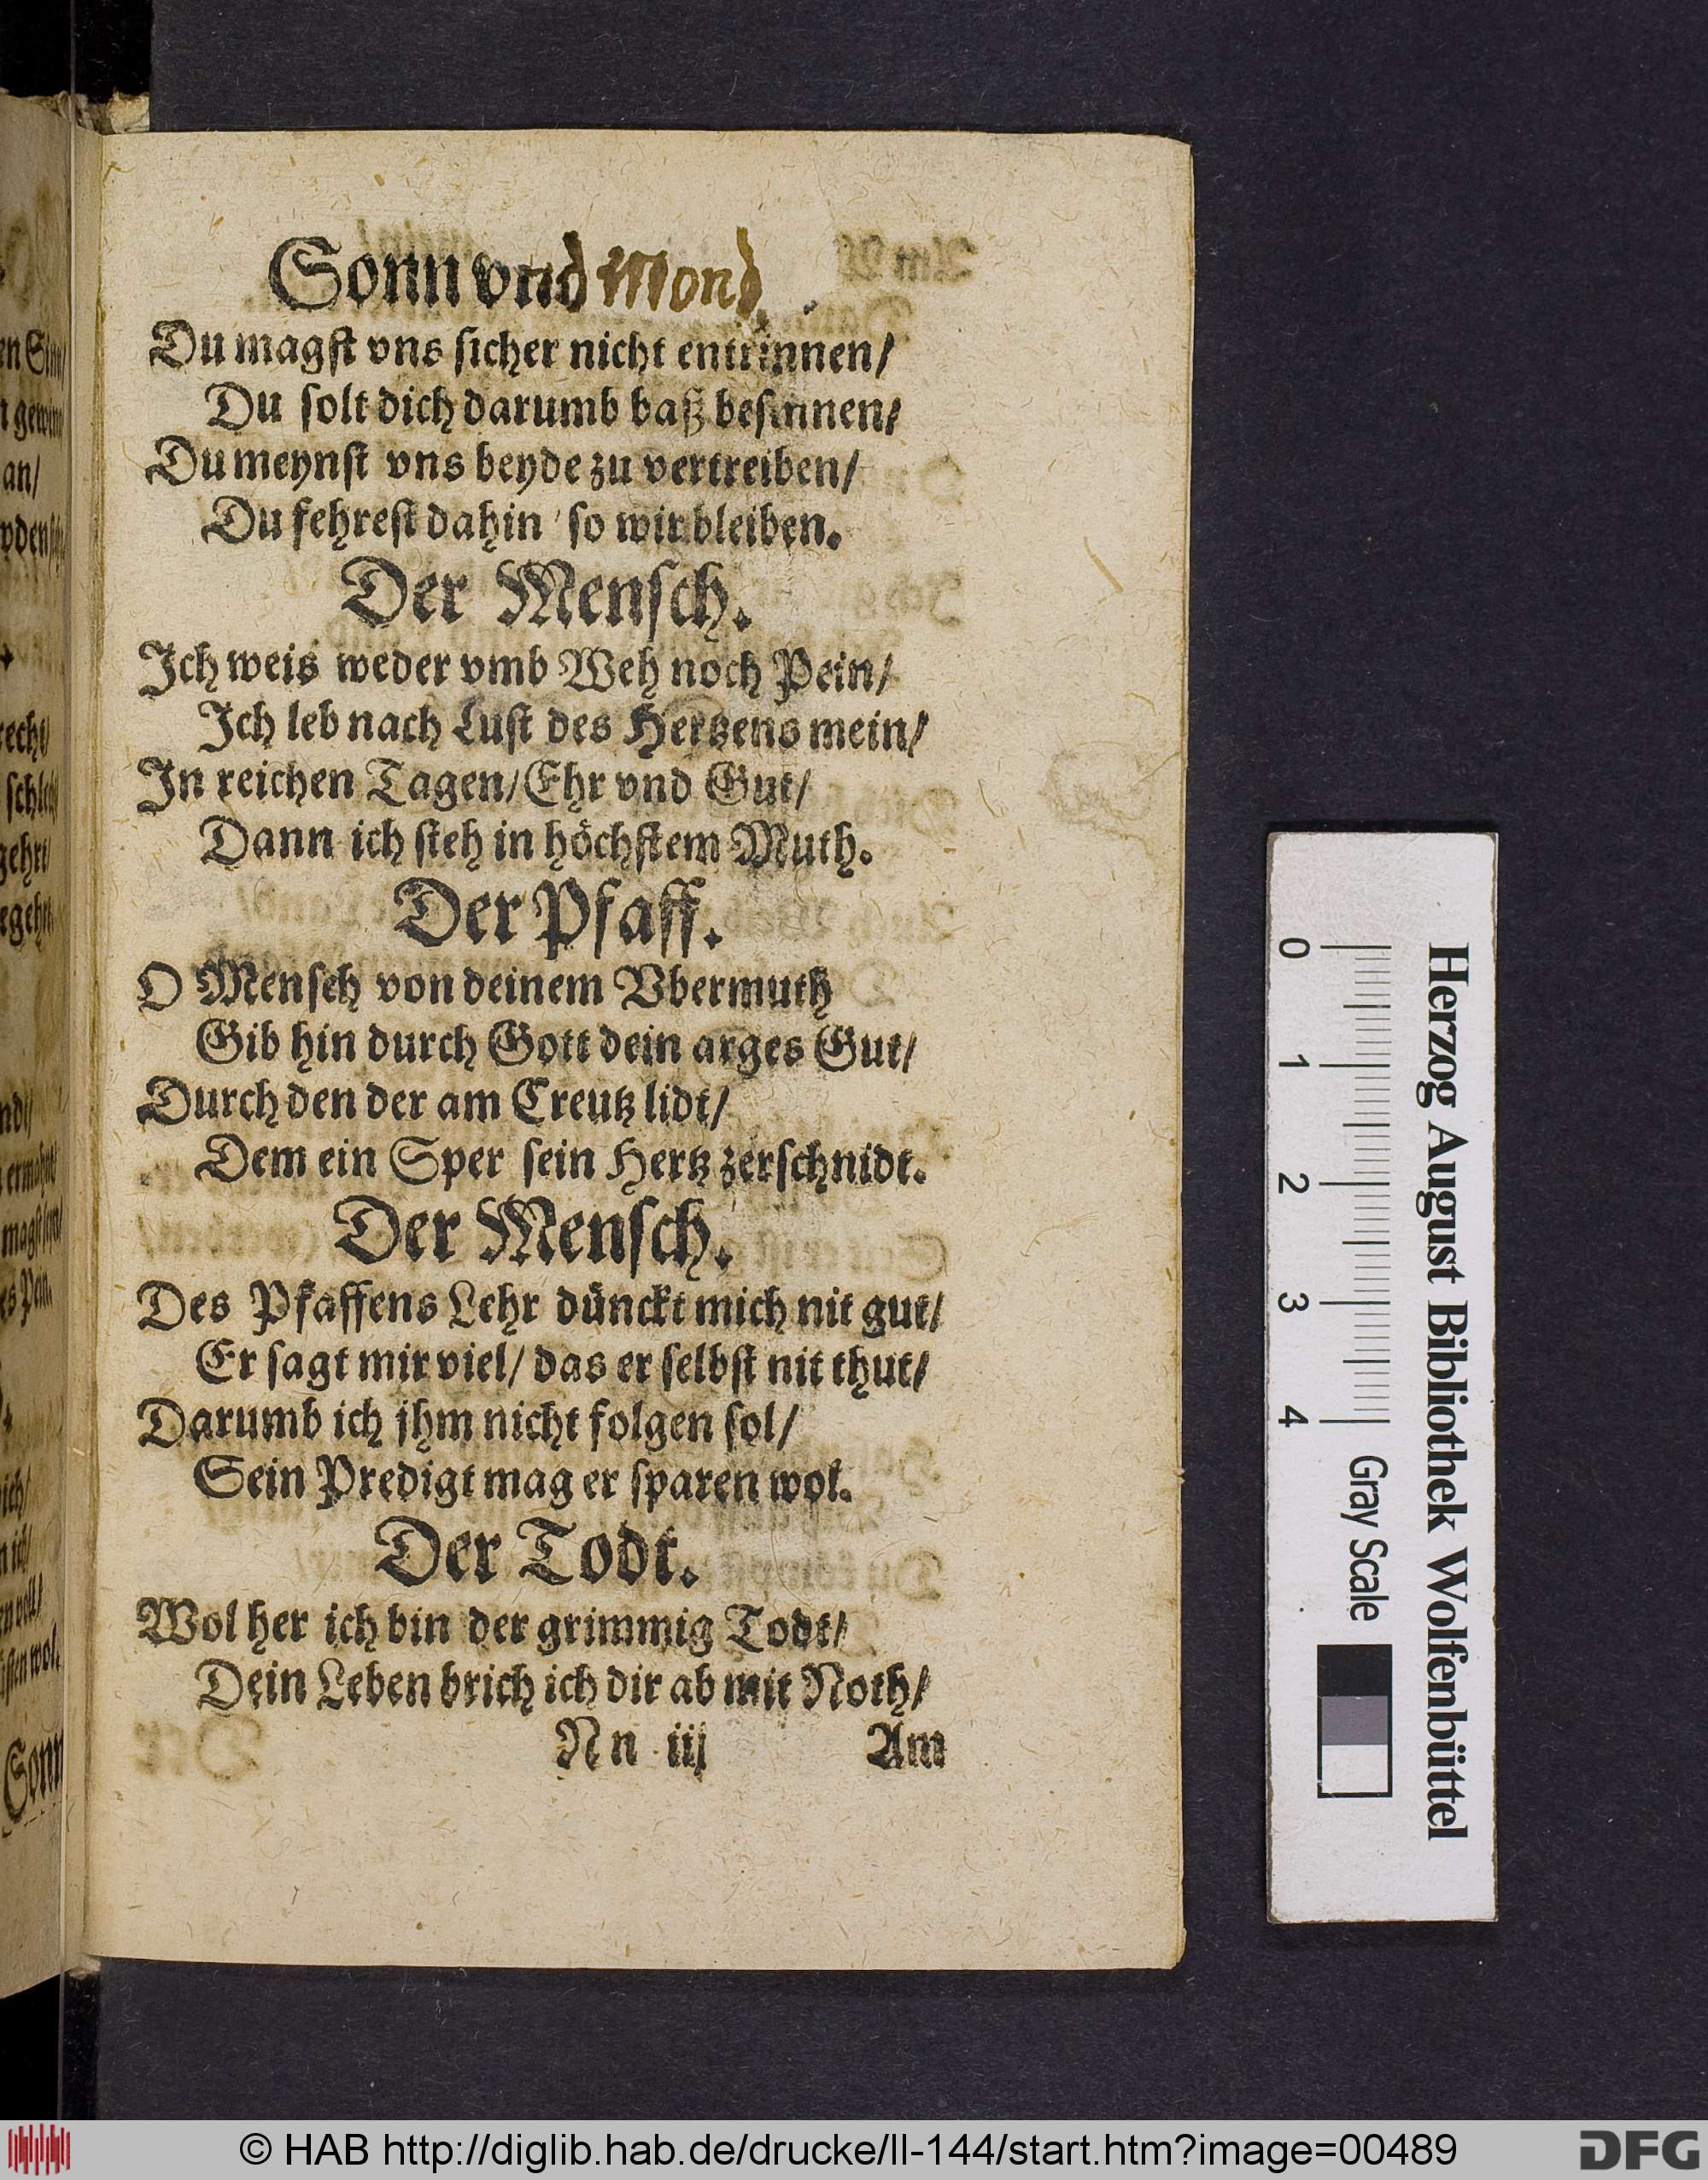 Sonn vnd Mond
Du magſt vns ſicher nicht entrinnen/
Du ſolt dich darumb baß beſinnen/
Du meynſt vns beyde zu vertreiben/
Du fehreſt dahin / ſo wir bleiben.
Der Menſch.
Ich weis weder vmb Weh noch Pein/
Ich leb nach Luſt des Hertzens mein/
In reichen Tagen/ Ehr vnd Gut/
Dann ich ſteh in höchſtem Muth.
Der Pfaff.
O Menſch von deinem Vbermuth
Gib hin durch Gott dein arges Gut/
Durch den der am Creutz lidt/
Dem ein Sper ſein Hertz zerſchnidt.
Der Menſch.
Des Pfaffens Lehr dünckt mich nit gut/
Er ſagt mir viel/ das er ſelbſt nit thut/
Darumb ich jhm nicht folgen ſol/
Sein Predigt mag er ſparen wol.
Der Todt.
Wol her ich bin der grimmig Todt/
Dein Leben brich ich dir ab mit Noth/
Nn iij Am
Herzog August Bibliothek Wolfenbüttel
0 1 2 3 4 Gray Scale
© HAB http://diglib.hab.de/drucke/ll-144/start.htm?image=00489
DFG